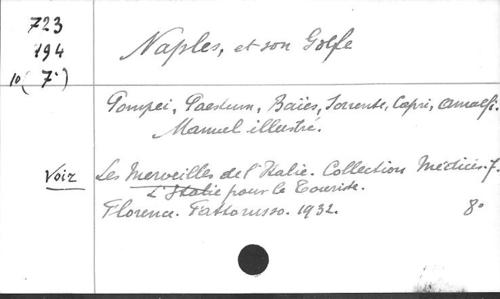 723
194
10(7°)
Naples, et son Golfe
Pompei, Paestum, Baïes, Sorrente, Capri, Amalfi.
Manuel illustré.
Voir
Les Merveilles de l'Italie. Collection Médicis. 7.
L'Italie pour le Touriste.
Florence. Fattorusso. 1932. 8°